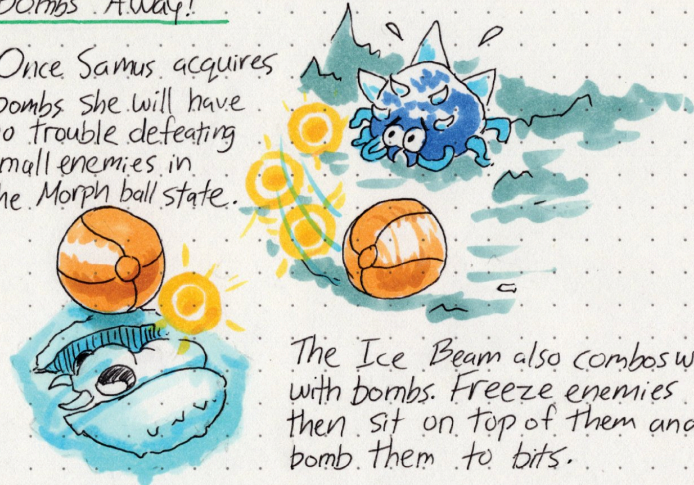 Bombs Away!
Once Samus acquires
bombs she will have
no trouble defeating
small enemies in
the Morph ball state.
The Ice Beam also combos w
with bombs. Freeze enemies
then sit on top of them and
bomb them to bits.